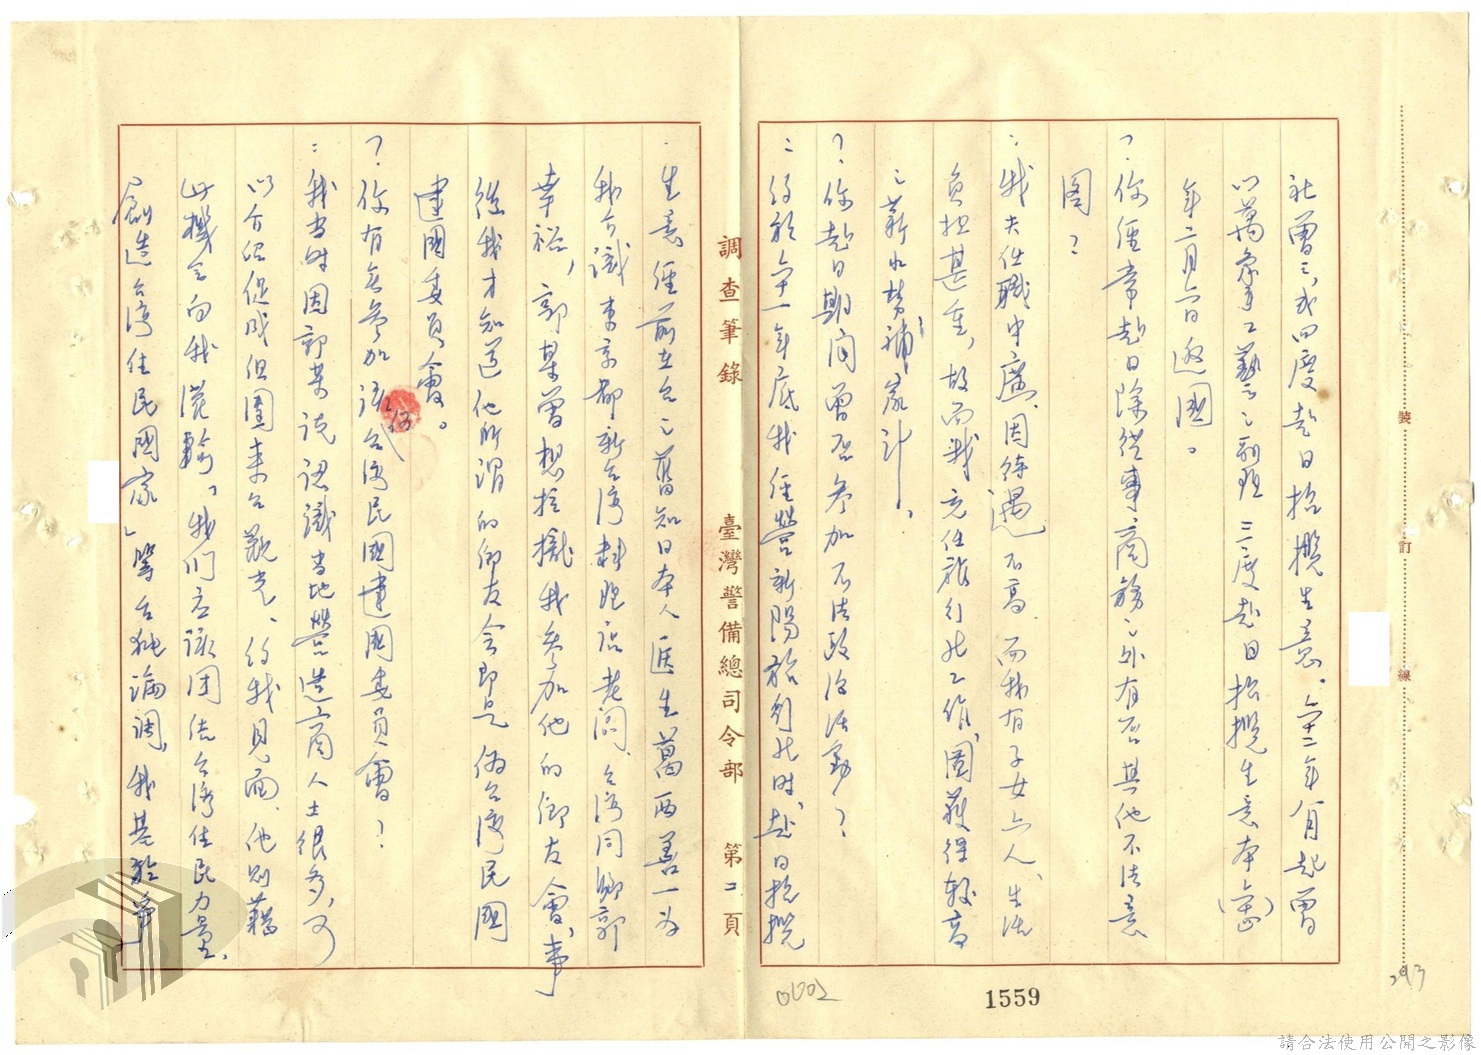 社曾三、或四度赴日招攬生意。六十二年八月起曾
以萬家手工藝之經理三度赴日招攬生意本(六五)
年二月六日返國。
?.你經常赴日除從事商務之外有否其他不法意
圖?
:我夫任職中廣、因待遇不高、而我有子女六人、生活
負担甚重,故而我充任旅行社工作、圖獲得較高
之薪水貼補家計。
?.你赴日期間曾否參加不法政治活動?
:約於六十一年底我經營新陽旅行社時、赴日招攬
調查筆錄 臺灣警備總司令部 第二頁
生意經前在台之舊知日本人医生萬西善一為
我介識東京都新台灣料理店老闆、台灣同鄉郭
幸裕,郭某曾想拉攏我參加他的鄉友會、事
後我才知道他所謂的鄉友会即是偽台灣民國
建國委員會。
?.你有無參加該偽台灣民國建國委員會?
:我當時因郭某說認識當地營造商人士很多,可
以介紹促成組團來台觀光、約我見面、他則藉
此機会向我灌輸。我们应該団結台灣住民力量、
創造台灣住民國家」等台独論調、我基於筆
1559
293
裝
訂
線
請合法使用公開之影像